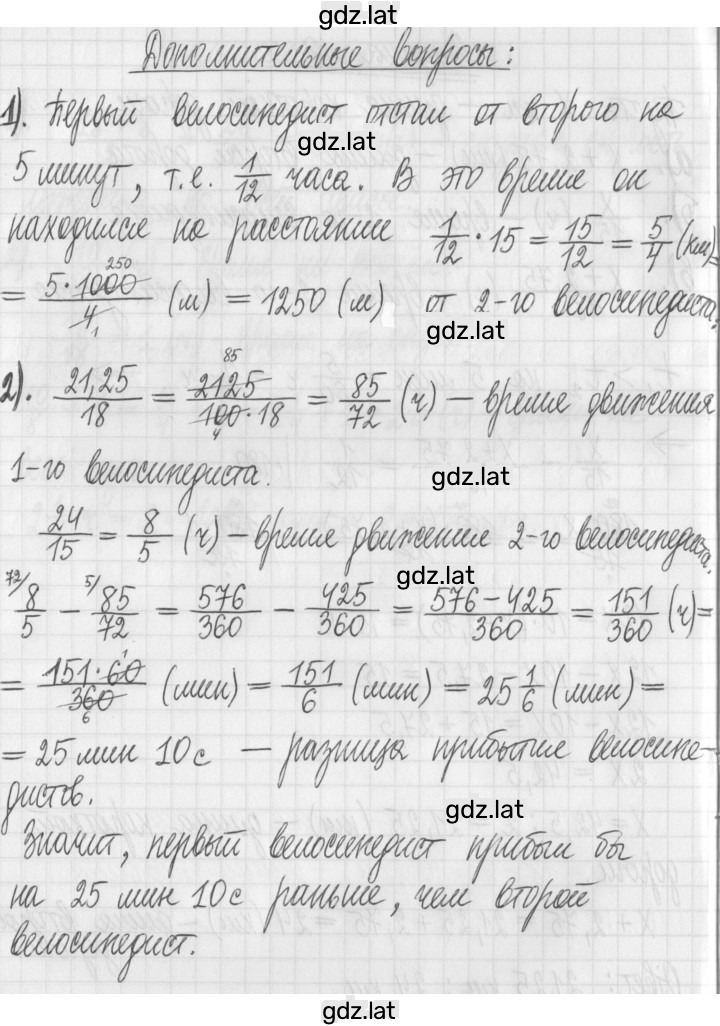 gdz.lat
Дополнительные вопросы:
1). Первый велосипедист отстал от второго на
gdz.lat
5 минут, т.е. 1/12 часа. В это время он
находился на расстоянии 1/12 · 15 = 15/12 = 5/4 (км) =
= 5·1000/4 (м) = 1250 (м) от 2-го велосипедиста.
250
1
gdz.lat
2). 21,25/18 = 2125/100·18 = 85/72 (ч) — время движения
85
4
1-го велосипедиста.
gdz.lat
24/15 = 8/5 (ч) — время движения 2-го велосипедиста.
gdz.lat
72/ 8/5 − 5/ 85/72 = 576/360 − 425/360 = 576−425/360 = 151/360 (ч) =
= 151·60/360 (мин) = 151/6 (мин) = 25 1/6 (мин) =
1
6
= 25 мин 10 с — разница прибытие велосипе-
дистов.
gdz.lat
Значит, первый велосипедист прибыл бы
на 25 мин 10 с раньше, чем второй
велосипедист.
gdz.lat